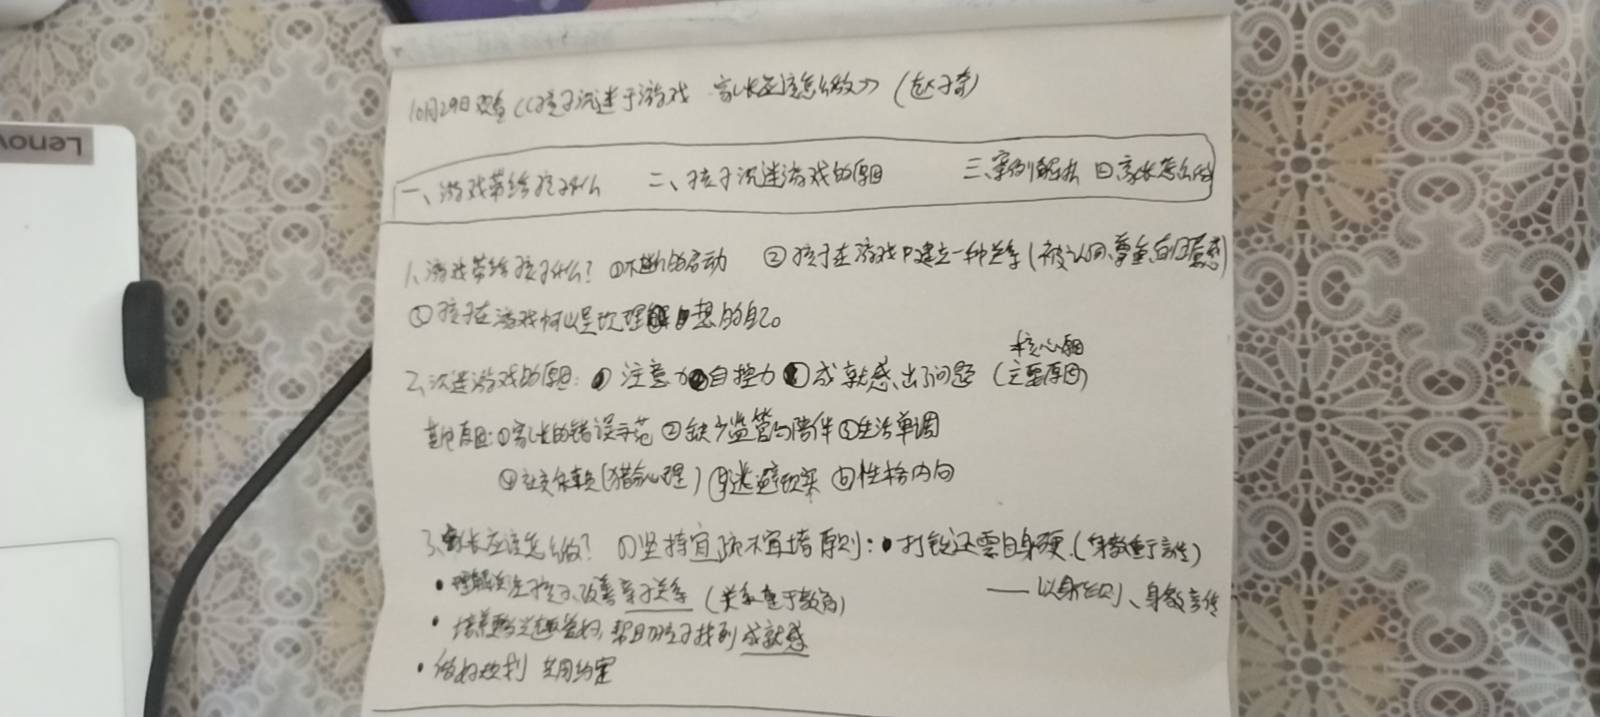 Lenov
10月29日观看《孩子沉迷于游戏 家长应该怎么做》(赵子奇)
一、游戏带给孩子什么 二、孩子沉迷游戏的原因 三、案例解析 四家长怎么做
1、游戏带给孩子什么? ①不断的启动 ②孩子在游戏中建立一种关系(被认同、尊重、归属感)
③孩子在游戏中可以呈现理想的自己。
2、沉迷游戏的原因: ① 注意力 ②自控力 ③成就感出了问题 (主要原因)
核心原因
其他原因: ①家长的错误示范 ②缺少监管与陪伴 ③生活单调
④社交依赖(猎奇心理) ⑤逃避现实 ⑥性格内向
3、家长应该怎么做? ①坚持宜疏不宜堵原则: 打铁还需自身硬.(身教重于言传)
• 理解关注孩子、改善亲子关系 (关系重于教育) ——以身作则、身教言传
• 培养兴趣爱好, 帮助孩子找到成就感
• 做好规划 共同约定